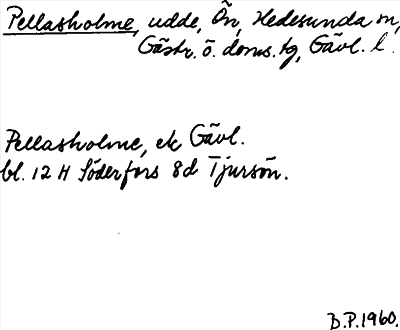 Pellasholme, udde, Ön, Hedesunda sn,
Gästr. ö. doms. tg, Gävl. l.
Pellasholme, ek Gävl.
bl. 12 H Söderfors 8d Tjursön.
B.P. 1960.